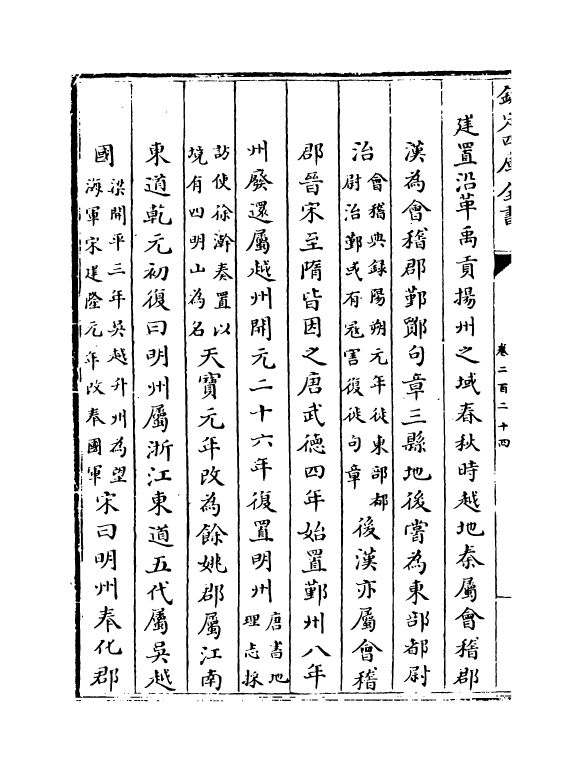 欽定四庫全書
卷二百二十四
建置沿革禹貢揚州之域春秋時越地秦屬會稽郡
漢為會稽郡鄞鄮句章三縣地後嘗為東部都尉
治會稽典録陽朔元年徙東部都尉治鄞或有冦害復徙句章後漢亦屬會稽
郡晉宋至隋皆因之唐武德四年始置鄞州八年
州廢還屬越州開元二十六年復置明州唐書地理志採
訪使徐澣奏置以境有四明山為名天寶元年改為餘姚郡屬江南
東道乾元初復曰明州屬浙江東道五代屬吳越
國梁開平三年吳越升州為望海軍宋建隆元年改奉國軍宋曰明州奉化郡